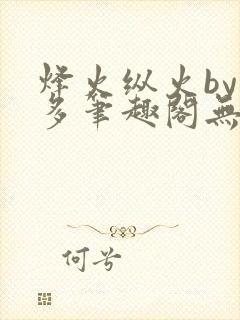 烽火纵火by
多笔趣阁無
何兮